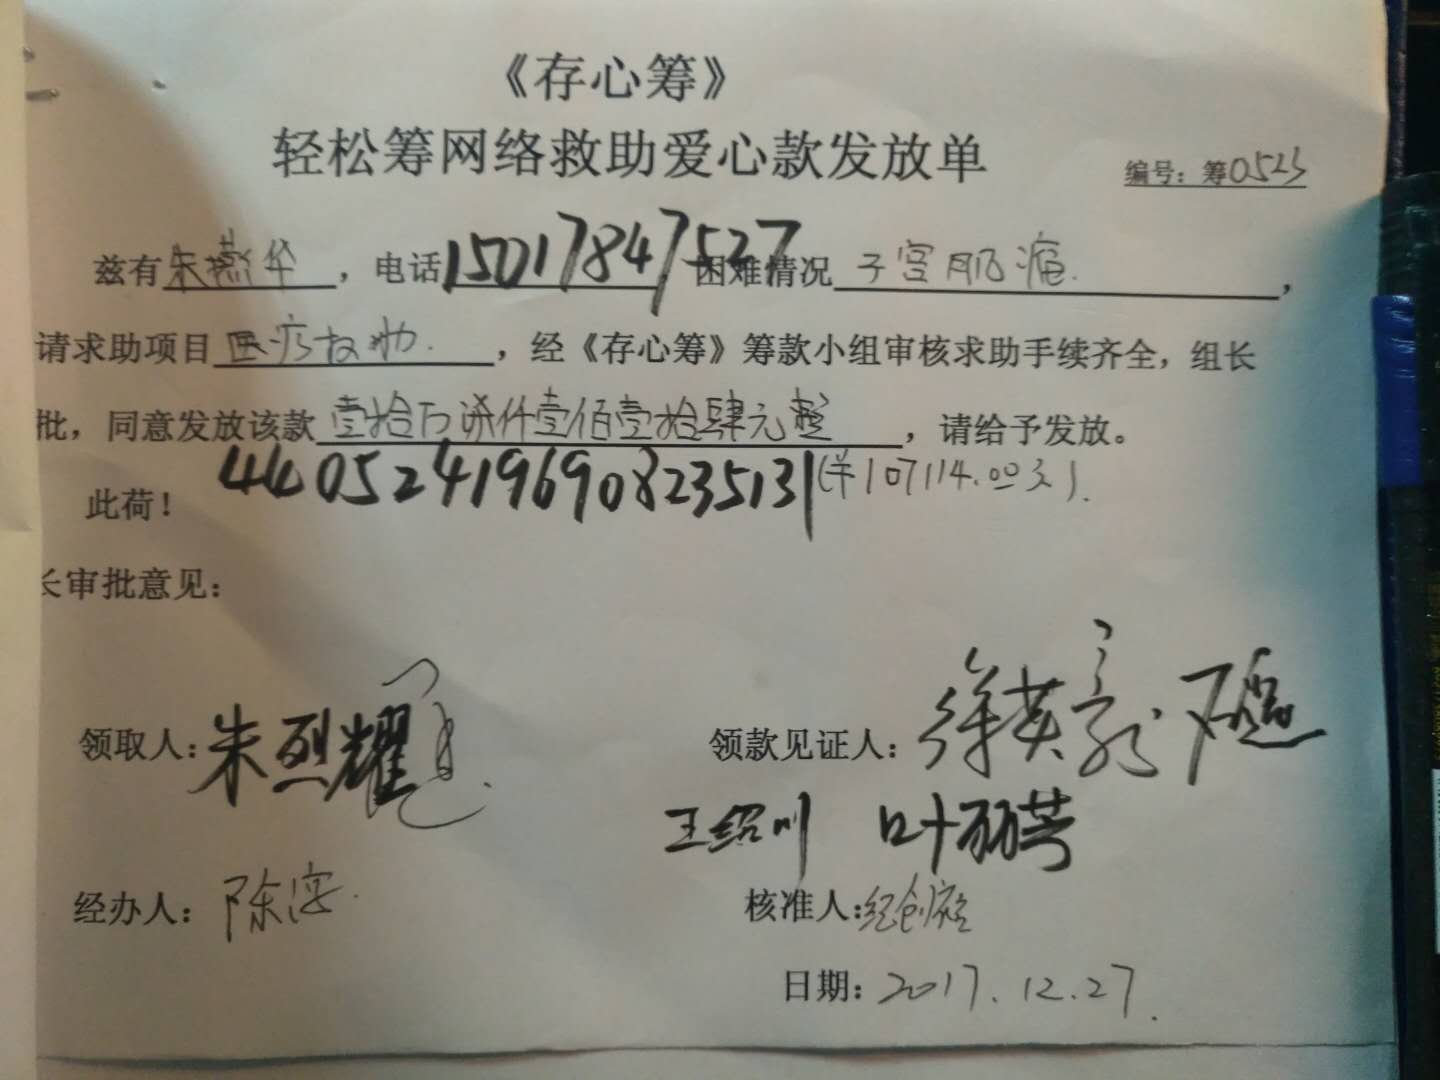 《存心筹》
轻松筹网络救助爱心款发放单
编号：筹0523
兹有朱燕华，电话15017847527困难情况子宫肌瘤.，
请求助项目医疗救助.，经《存心筹》筹款小组审核求助手续齐全，组长
批，同意发放该款壹拾万柒仟壹佰壹拾肆元整，请给予发放。
此荷！440524196908235131(¥107114.00元).
长审批意见：
领取人：朱烈耀 领款见证人：徐英
王绍川 叶丽芸
经办人：陈 核准人：
日期：2017.12.27.